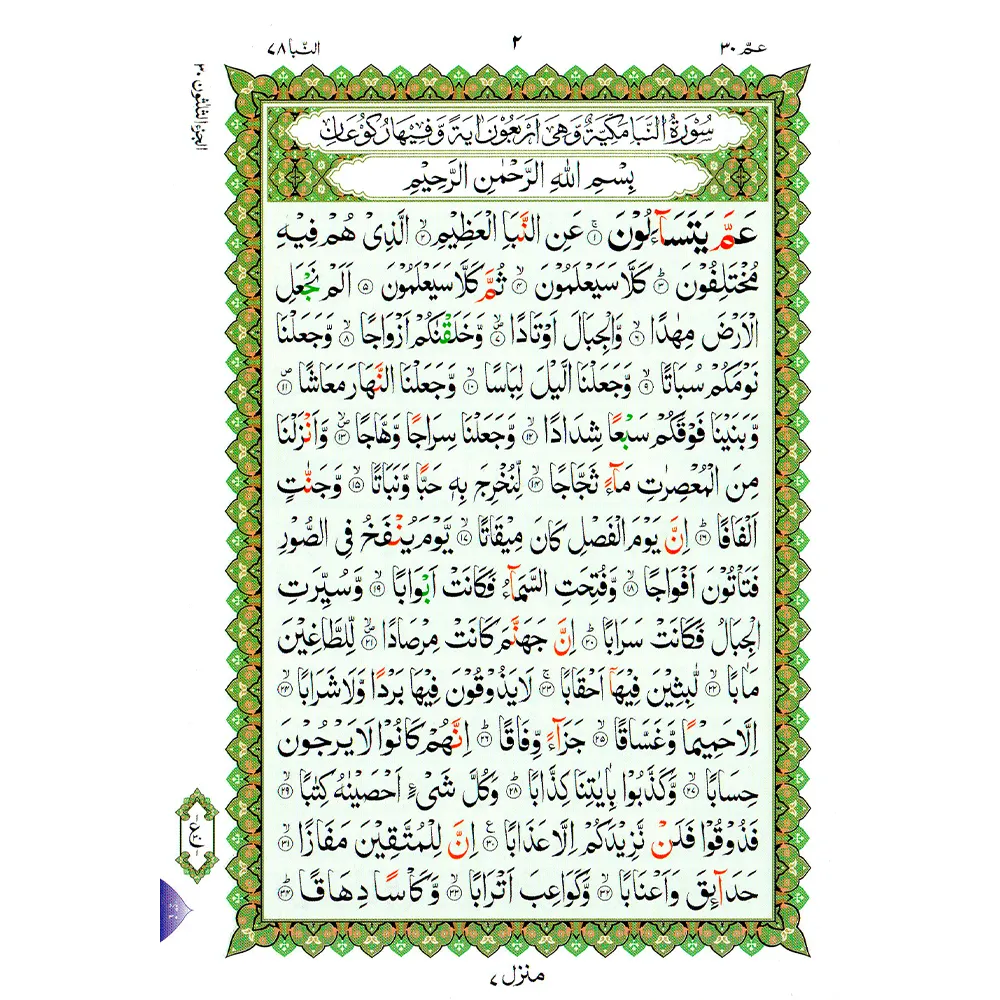 عم ٣٠
٢
النبا ٧٨
الجزء الثلثون ٣٠
سُوْرَةُ النَّبَاِ مَكِّيَّةٌ وَّهِیَ اَرْبَعُوْنَ اٰيَةً وَّفِيْهَا رُكُوْعَانِ
بِسْمِ اللهِ الرَّحْمٰنِ الرَّحِيْمِ
عَمَّ يَتَسَآءَلُوْنَ ۚ﴿۱﴾ عَنِ النَّبَاِ الْعَظِيْمِ ۙ﴿۲﴾ الَّذِیْ هُمْ فِيْهِ
مُخْتَلِفُوْنَ ؕ﴿۳﴾ كَلَّا سَيَعْلَمُوْنَ ۙ﴿۴﴾ ثُمَّ كَلَّا سَيَعْلَمُوْنَ ﴿۵﴾ اَلَمْ نَجْعَلِ
الْاَرْضَ مِهٰدًا ۙ﴿۶﴾ وَّالْجِبَالَ اَوْتَادًا ۪ۙ﴿۷﴾ وَّخَلَقْنٰكُمْ اَزْوَاجًا ۙ﴿۸﴾ وَّجَعَلْنَا
نَوْمَكُمْ سُبَاتًا ۙ﴿۹﴾ وَّجَعَلْنَا الَّيْلَ لِبَاسًا ۙ﴿۱۰﴾ وَّجَعَلْنَا النَّهَارَ مَعَاشًا ۪﴿۱۱﴾
وَّبَنَيْنَا فَوْقَكُمْ سَبْعًا شِدَادًا ۙ﴿۱۲﴾ وَّجَعَلْنَا سِرَاجًا وَّهَّاجًا ۪ۙ﴿۱۳﴾ وَّاَنْزَلْنَا
مِنَ الْمُعْصِرٰتِ مَآءً ثَجَّاجًا ۙ﴿۱۴﴾ لِّنُخْرِجَ بِهٖ حَبًّا وَّنَبَاتًا ۙ﴿۱۵﴾ وَّجَنّٰتٍ
اَلْفَافًا ؕ﴿۱۶﴾ اِنَّ يَوْمَ الْفَصْلِ كَانَ مِيْقَاتًا ۙ﴿۱۷﴾ يَّوْمَ يُنْفَخُ فِی الصُّوْرِ
فَتَاْتُوْنَ اَفْوَاجًا ۙ﴿۱۸﴾ وَّفُتِحَتِ السَّمَآءُ فَكَانَتْ اَبْوَابًا ۙ﴿۱۹﴾ وَّسُيِّرَتِ
الْجِبَالُ فَكَانَتْ سَرَابًا ؕ﴿۲۰﴾ اِنَّ جَهَنَّمَ كَانَتْ مِرْصَادًا ۪ۙ﴿۲۱﴾ لِّلطَّاغِيْنَ
مَاٰبًا ۙ﴿۲۲﴾ لّٰبِثِيْنَ فِيْهَاۤ اَحْقَابًا ۚ﴿۲۳﴾ لَا يَذُوْقُوْنَ فِيْهَا بَرْدًا وَّلَا شَرَابًا ۙ﴿۲۴﴾
اِلَّا حَمِيْمًا وَّغَسَّاقًا ۙ﴿۲۵﴾ جَزَآءً وِّفَاقًا ؕ﴿۲۶﴾ اِنَّهُمْ كَانُوْا لَا يَرْجُوْنَ
حِسَابًا ۙ﴿۲۷﴾ وَّكَذَّبُوْا بِاٰيٰتِنَا كِذَّابًا ؕ﴿۲۸﴾ وَكُلَّ شَیْءٍ اَحْصَيْنٰهُ كِتٰبًا ۙ﴿۲۹﴾
فَذُوْقُوْا فَلَنْ نَّزِيْدَكُمْ اِلَّا عَذَابًا ﴿۳۰﴾ اِنَّ لِلْمُتَّقِيْنَ مَفَازًا ۙ﴿۳۱﴾
حَدَآئِقَ وَاَعْنَابًا ۙ﴿۳۲﴾ وَّكَوَاعِبَ اَتْرَابًا ۙ﴿۳۳﴾ وَّكَاْسًا دِهَاقًا ؕ﴿۳۴﴾
منزل ٧